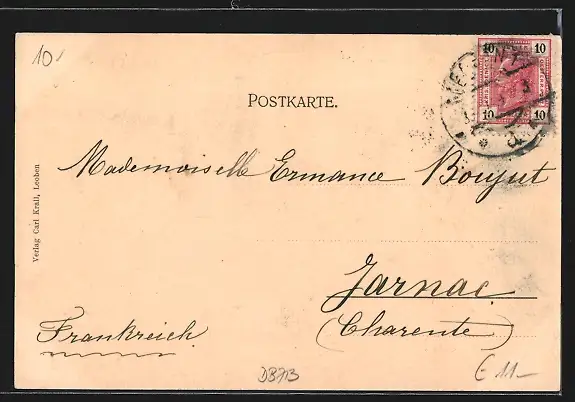 10
POSTKARTE.
10 10
10 10
Mademoiselle Ermance Boujut
Verlag Carl Krall, Leoben
Jarnac
(Charente)
Frankreich.
DB713
€ 11.-